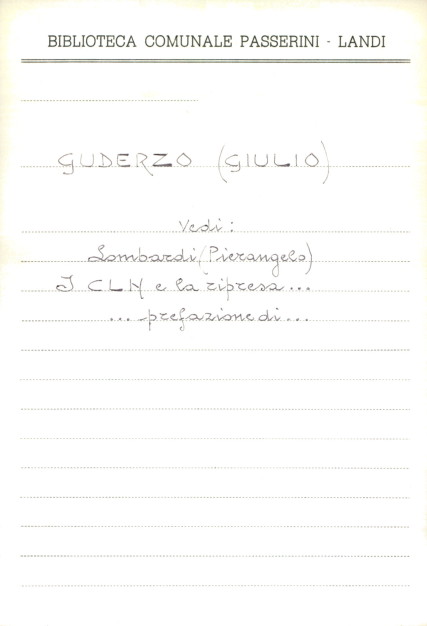 BIBLIOTECA COMUNALE PASSERINI - LANDI
GUDERZO (GIULIO)
Vedi:
Lombardi (Pierangelo)
I CLN e la ripresa...
... prefazione di...